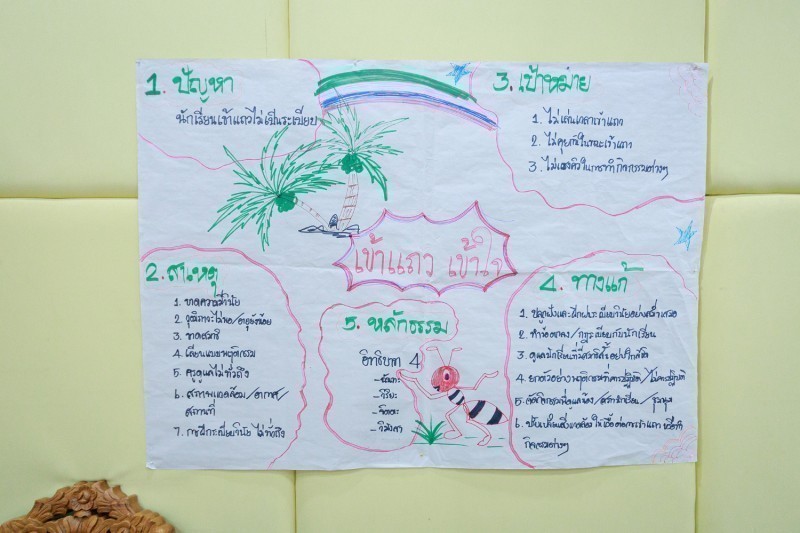 1. ปัญหา
นักเรียนเข้าแถวไม่เป็นระเบียบ
3. เป้าหมาย
1. ไม่เล่นเวลาเข้าแถว
2. ไม่คุยกันในขณะเข้าแถว
3. ไม่แซงคิวในการทำกิจกรรมต่างๆ
เข้าแถว เข้าใจ
2. สาเหตุ
1. ขาดความมีวินัย
2. วุฒิภาวะไม่พอ/อายุยังน้อย
3. ขาดสมาธิ
4. เลียนแบบพฤติกรรม
5. ครูดูแลไม่ทั่วถึง
6. สภาพแวดล้อม/อากาศ/
สถานที่
7. ระเบียบวินัย ไม่ทั่วถึง
5. หลักธรรม
อิทธิบาท 4
- ฉันทะ
- วิริยะ
- จิตตะ
- วิมังสา
4. ทางแก้
1. ปลูกฝังและฝึกระเบียบวินัยอย่างสม่ำเสมอ
2. ทำข้อตกลง/กฎระเบียบกับนักเรียน
3. ดูแลนักเรียนที่มีสมาธิสั้นอย่างใกล้ชิด
4. ยกตัวอย่างพฤติกรรมที่ควรปฏิบัติ/ไม่ควรปฏิบัติ
5.
6. ปรับเปลี่ยนสิ่งแวดล้อม ให้เอื้อต่อการเข้าแถว หรือทำ
กิจกรรมต่างๆ